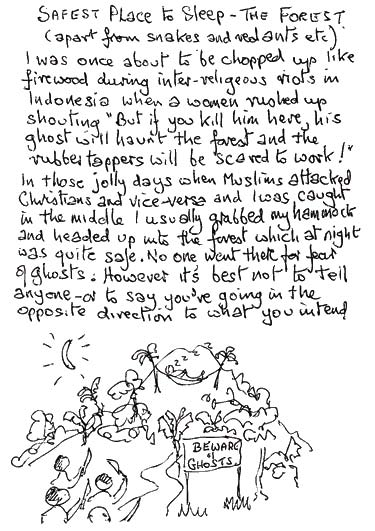 SAFEST PLACE to SLEEP - THE FOREST
(apart from snakes and red ants etc)
I was once about to be chopped up like
firewood during inter-religeous riots in
Indonesia when a women rushed up
shouting "But if you kill him here, his
ghost will haunt the forest and the
rubber tappers will be scared to work!"
In those jolly days when Muslims attacked
Christians and vice-versa and I was caught
in the middle I usually grabbed my hammock
and headed up into the forest which at night
was quite safe. No one went there for fear
of ghosts. However it's best not to tell
anyone - or to say you're going in the
opposite direction to what you intend
zzzz
BEWARE
of
GHOSTS